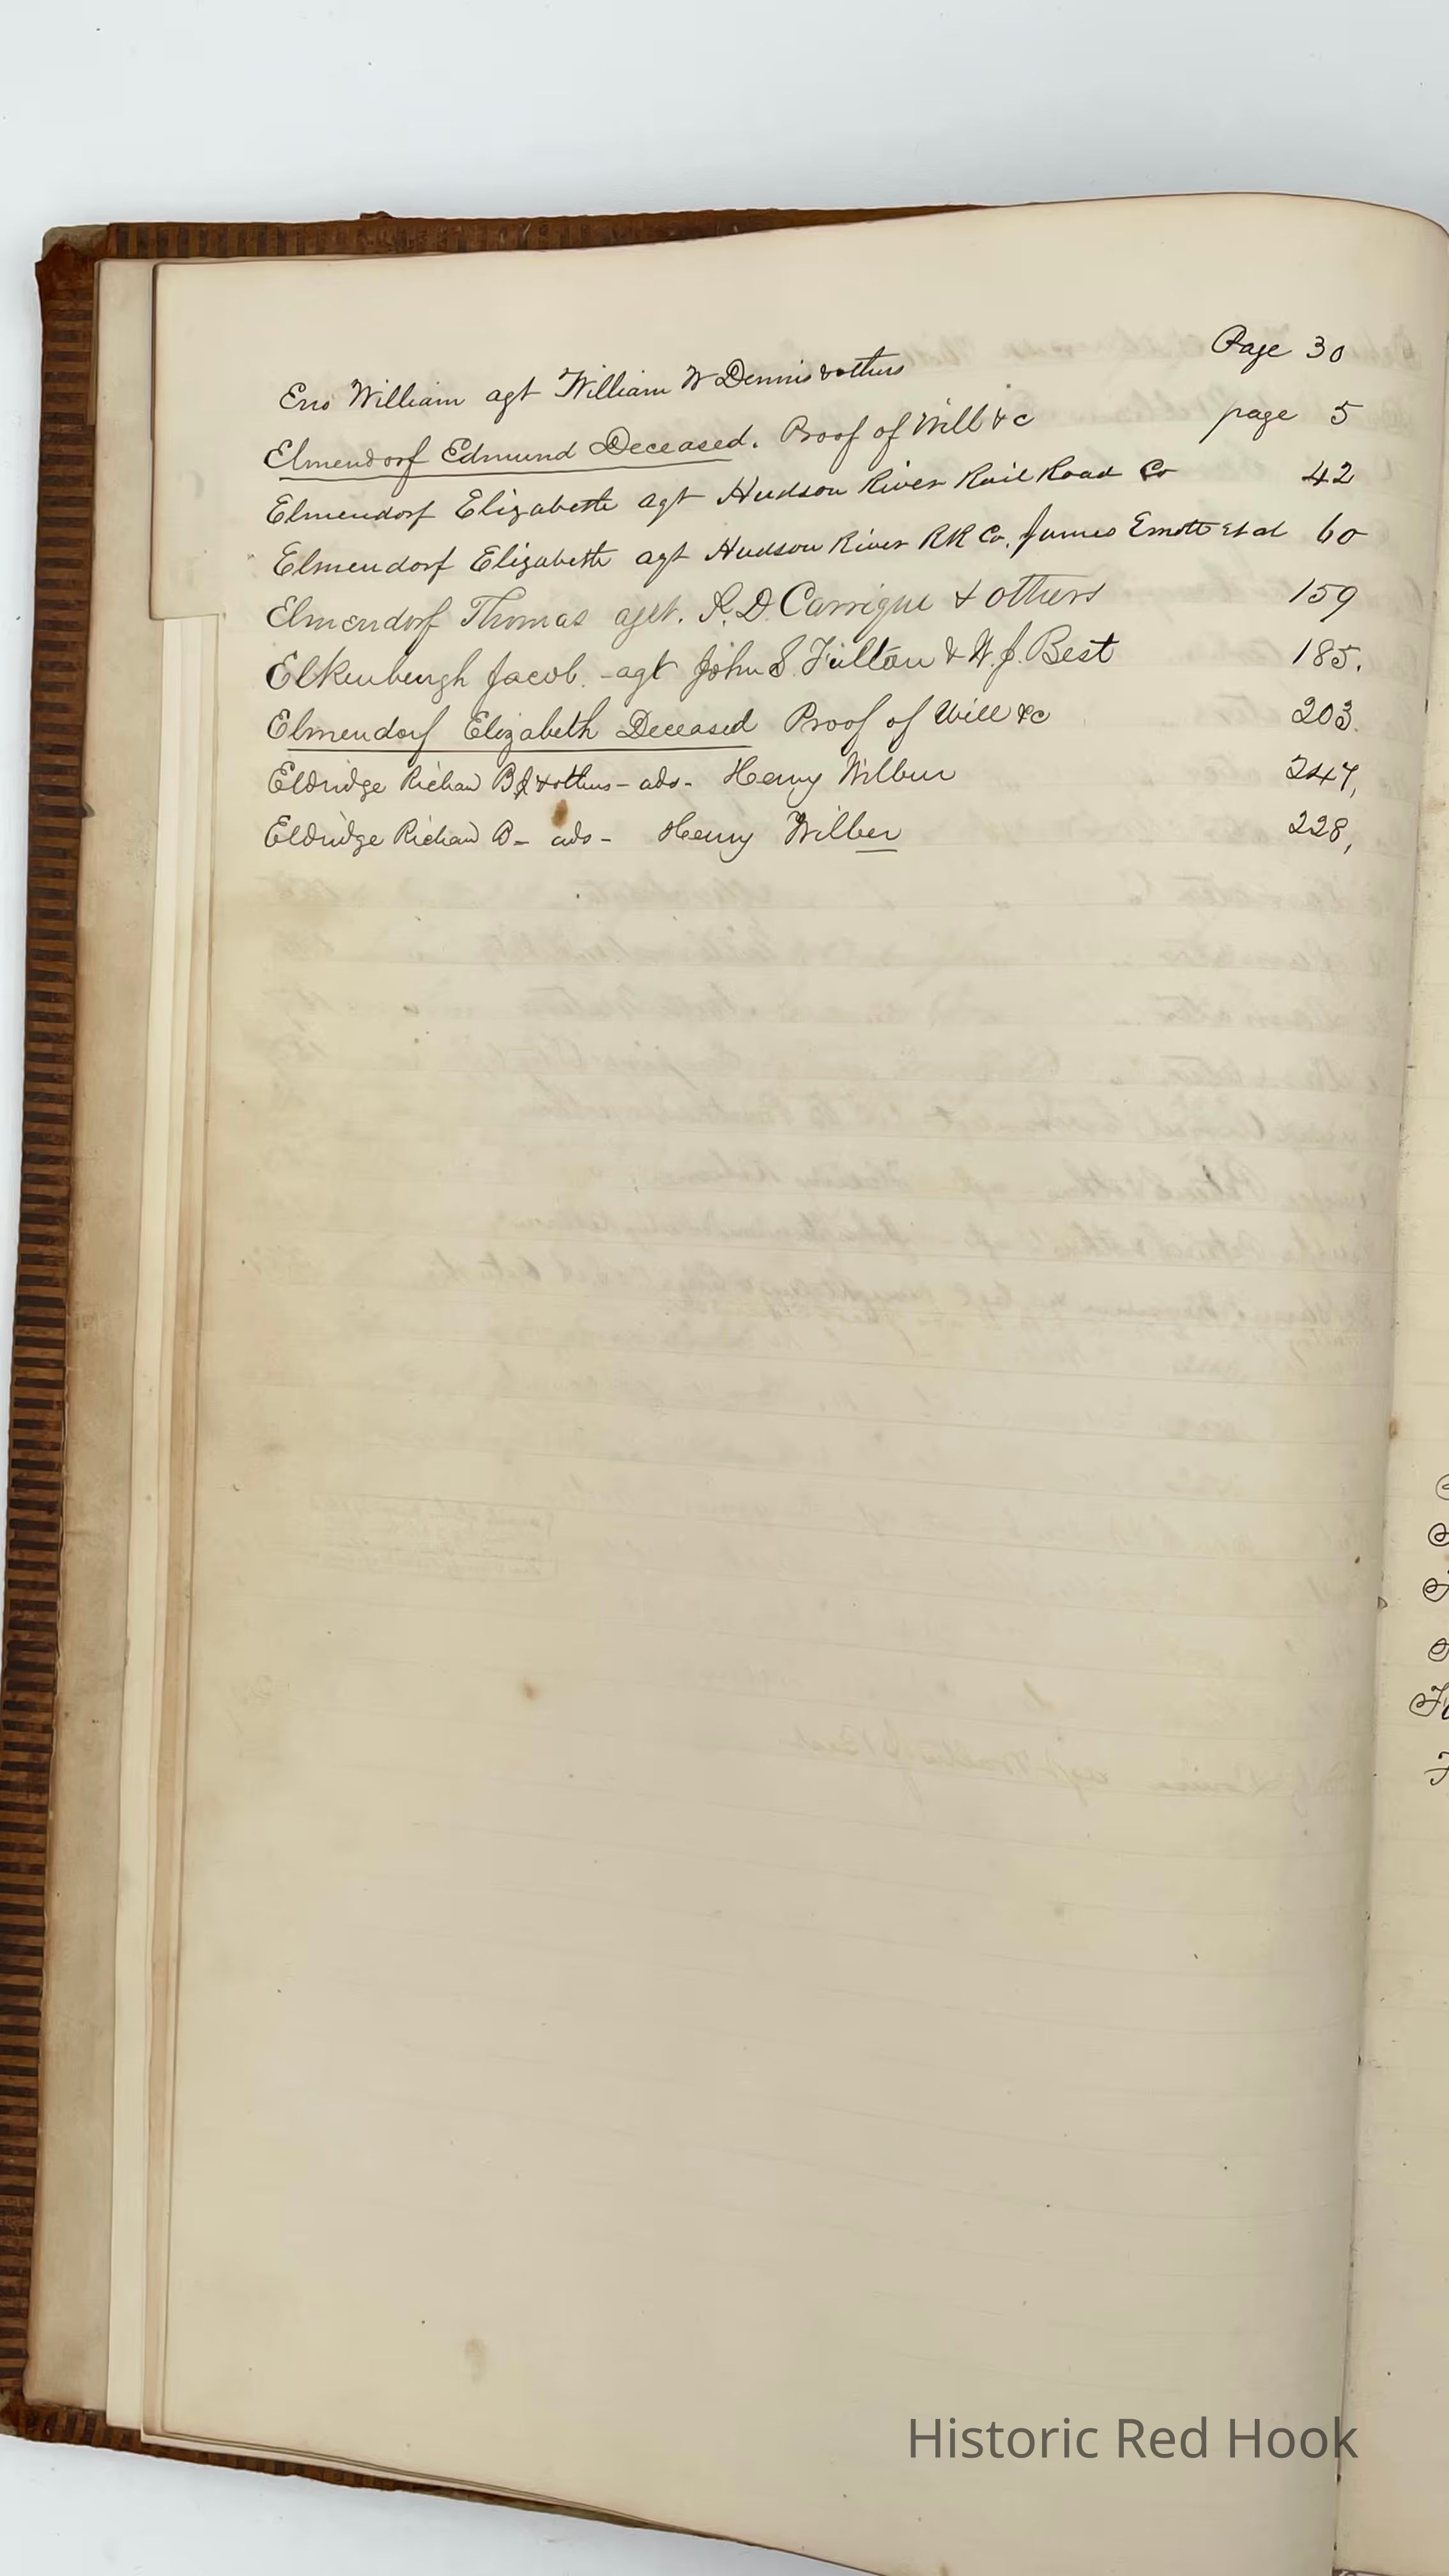 Eno William agt William W Dennis & others Page 30
Elmendorf Edmund Deceased. Proof of Will &c page 5
Elmendorf Elizabeth agt Hudson River Rail Road Co 42
Elmendorf Elizabeth agt Hudson River RR Co. James Emott et al 60
Elmendorf Thomas agt. S. D. Carrigue & others 159
Elkenburgh Jacob. - agt John S. Fulton & W. J. Best 185.
Elmendorf Elizabeth Deceased Proof of Will &c 203.
Eldridge Richard B & others - ads - Henry Wilbur 247,
Eldridge Richard B - ads - Henry Wilber 228,
Historic Red Hook